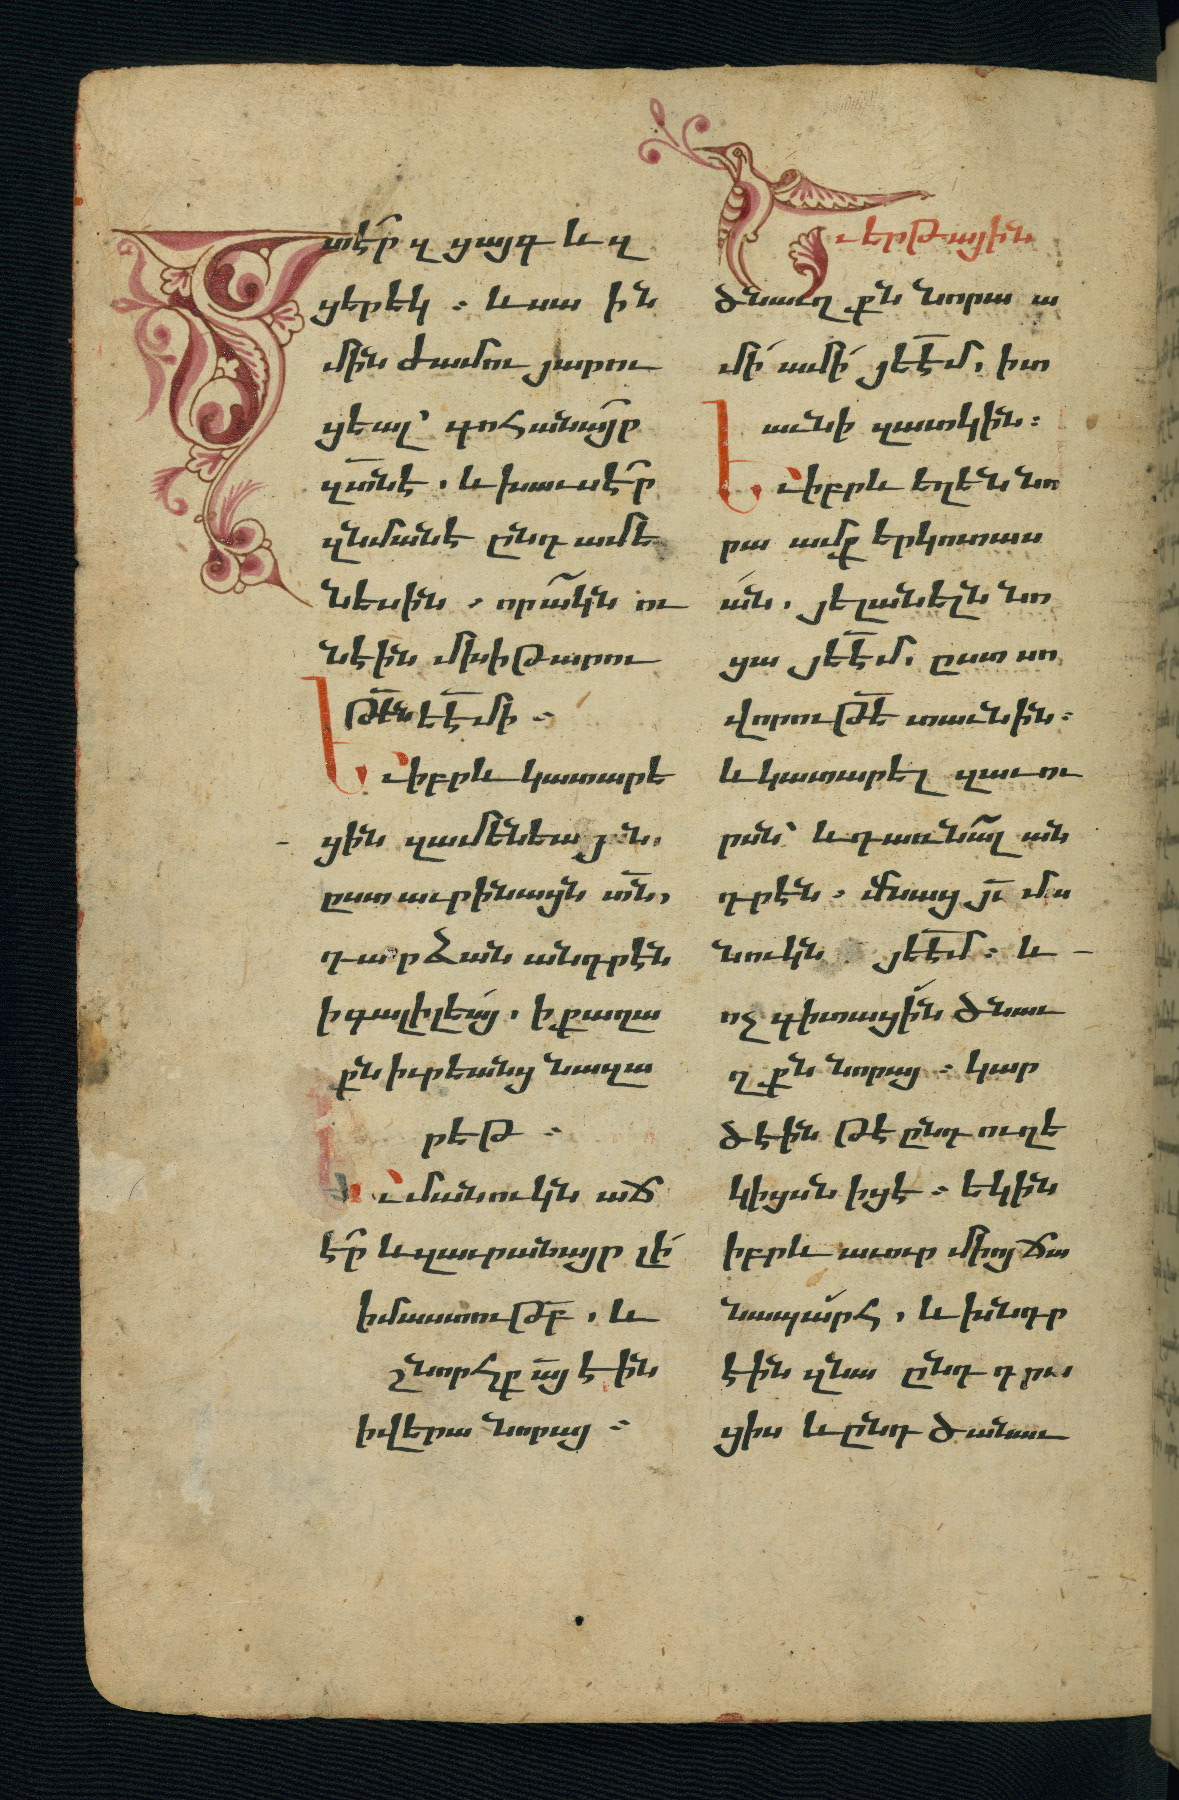 տէր զցայգ և զ
ցերեկ ։ և սա ին
մին ժամու յարու
ցեալ՝ գոհանայր
զտնէ, և խաւսէր
զնմանէ ընդ ամե
նեսին ․ որ ակն ու
նէին մխիթարու
թեն եէմի ։
Եւ իբրև կատարե
ցին զամենեայն,
ըստ աւրինացն տն,
դարձան անդրէն
ի գալիլեայ, ի քաղա
քն իւրեանց նազա
րեթ ։
Եւ մանուկն աճ
էր և զաւրանայր լի
իմաստութբ, և
շնորհք այ էին
ի վերա նորայ ։
Եւ երթային
ծնաւղքն նորա ա
մի ամի յեէմ, ի տ
աւնի զատկին ։
Եւ իբրև եղեն նո
րա ամք երկոտաս
ան, յելանելն նո
ցա յեէմ, ըստ սո
վորութե տաւնին ։
և կատարել զաւու
րսն՝ և դառնալ ան
դրէն, մնաց յս մա
նուկն յեէմ ։ և
ոչ գիտացին ծնաւ
ղքն նորայ ։ կար
ծէին թէ ընդ ուղե
կիցսն իցէ ։ եկին
իբրև աւուր միոյ ճա
նապարհ, և խնդր
էին զնա ընդ դրա
ցիս և ընդ ծանաւ